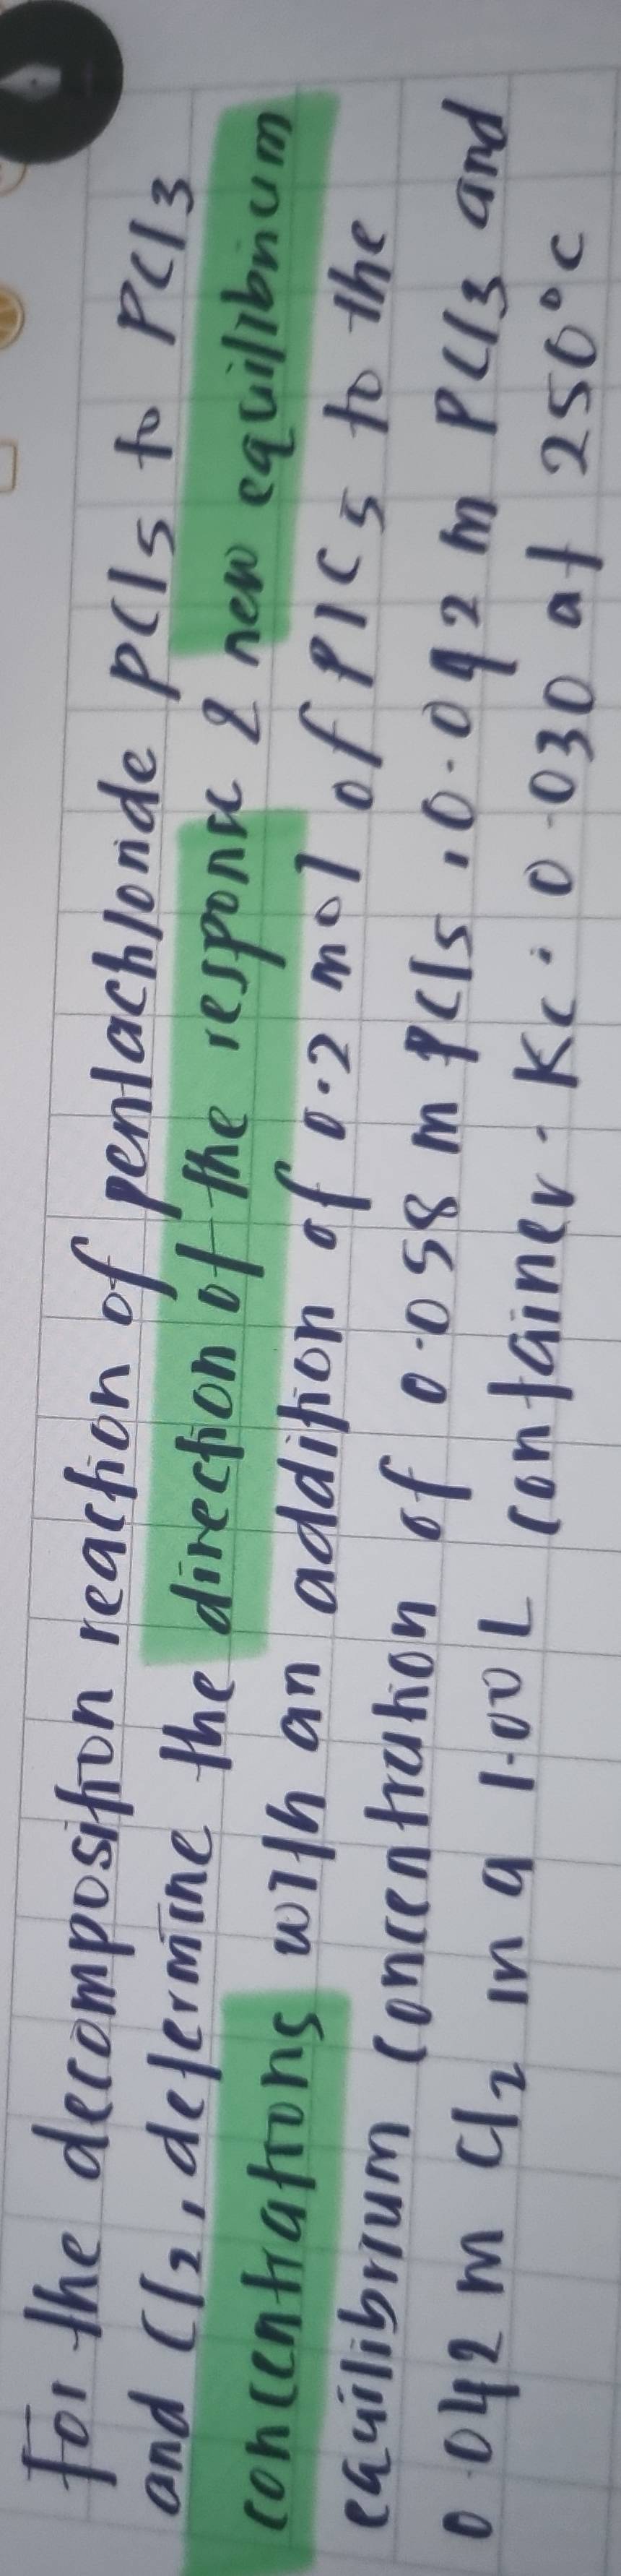 For the decomposition reaction of pentachloride PCl5 to PCl3
and Cl2, determine the direction of the response & new equilibrium
concentrations with an addition of 0.2 mol of PlC5 to the
equilibrium concentration of 0.058 m PCl5, 0.042 m PCl3 and
0.042 m Cl2 in a 1.00 L container. Kc = 0.030 at 250°C